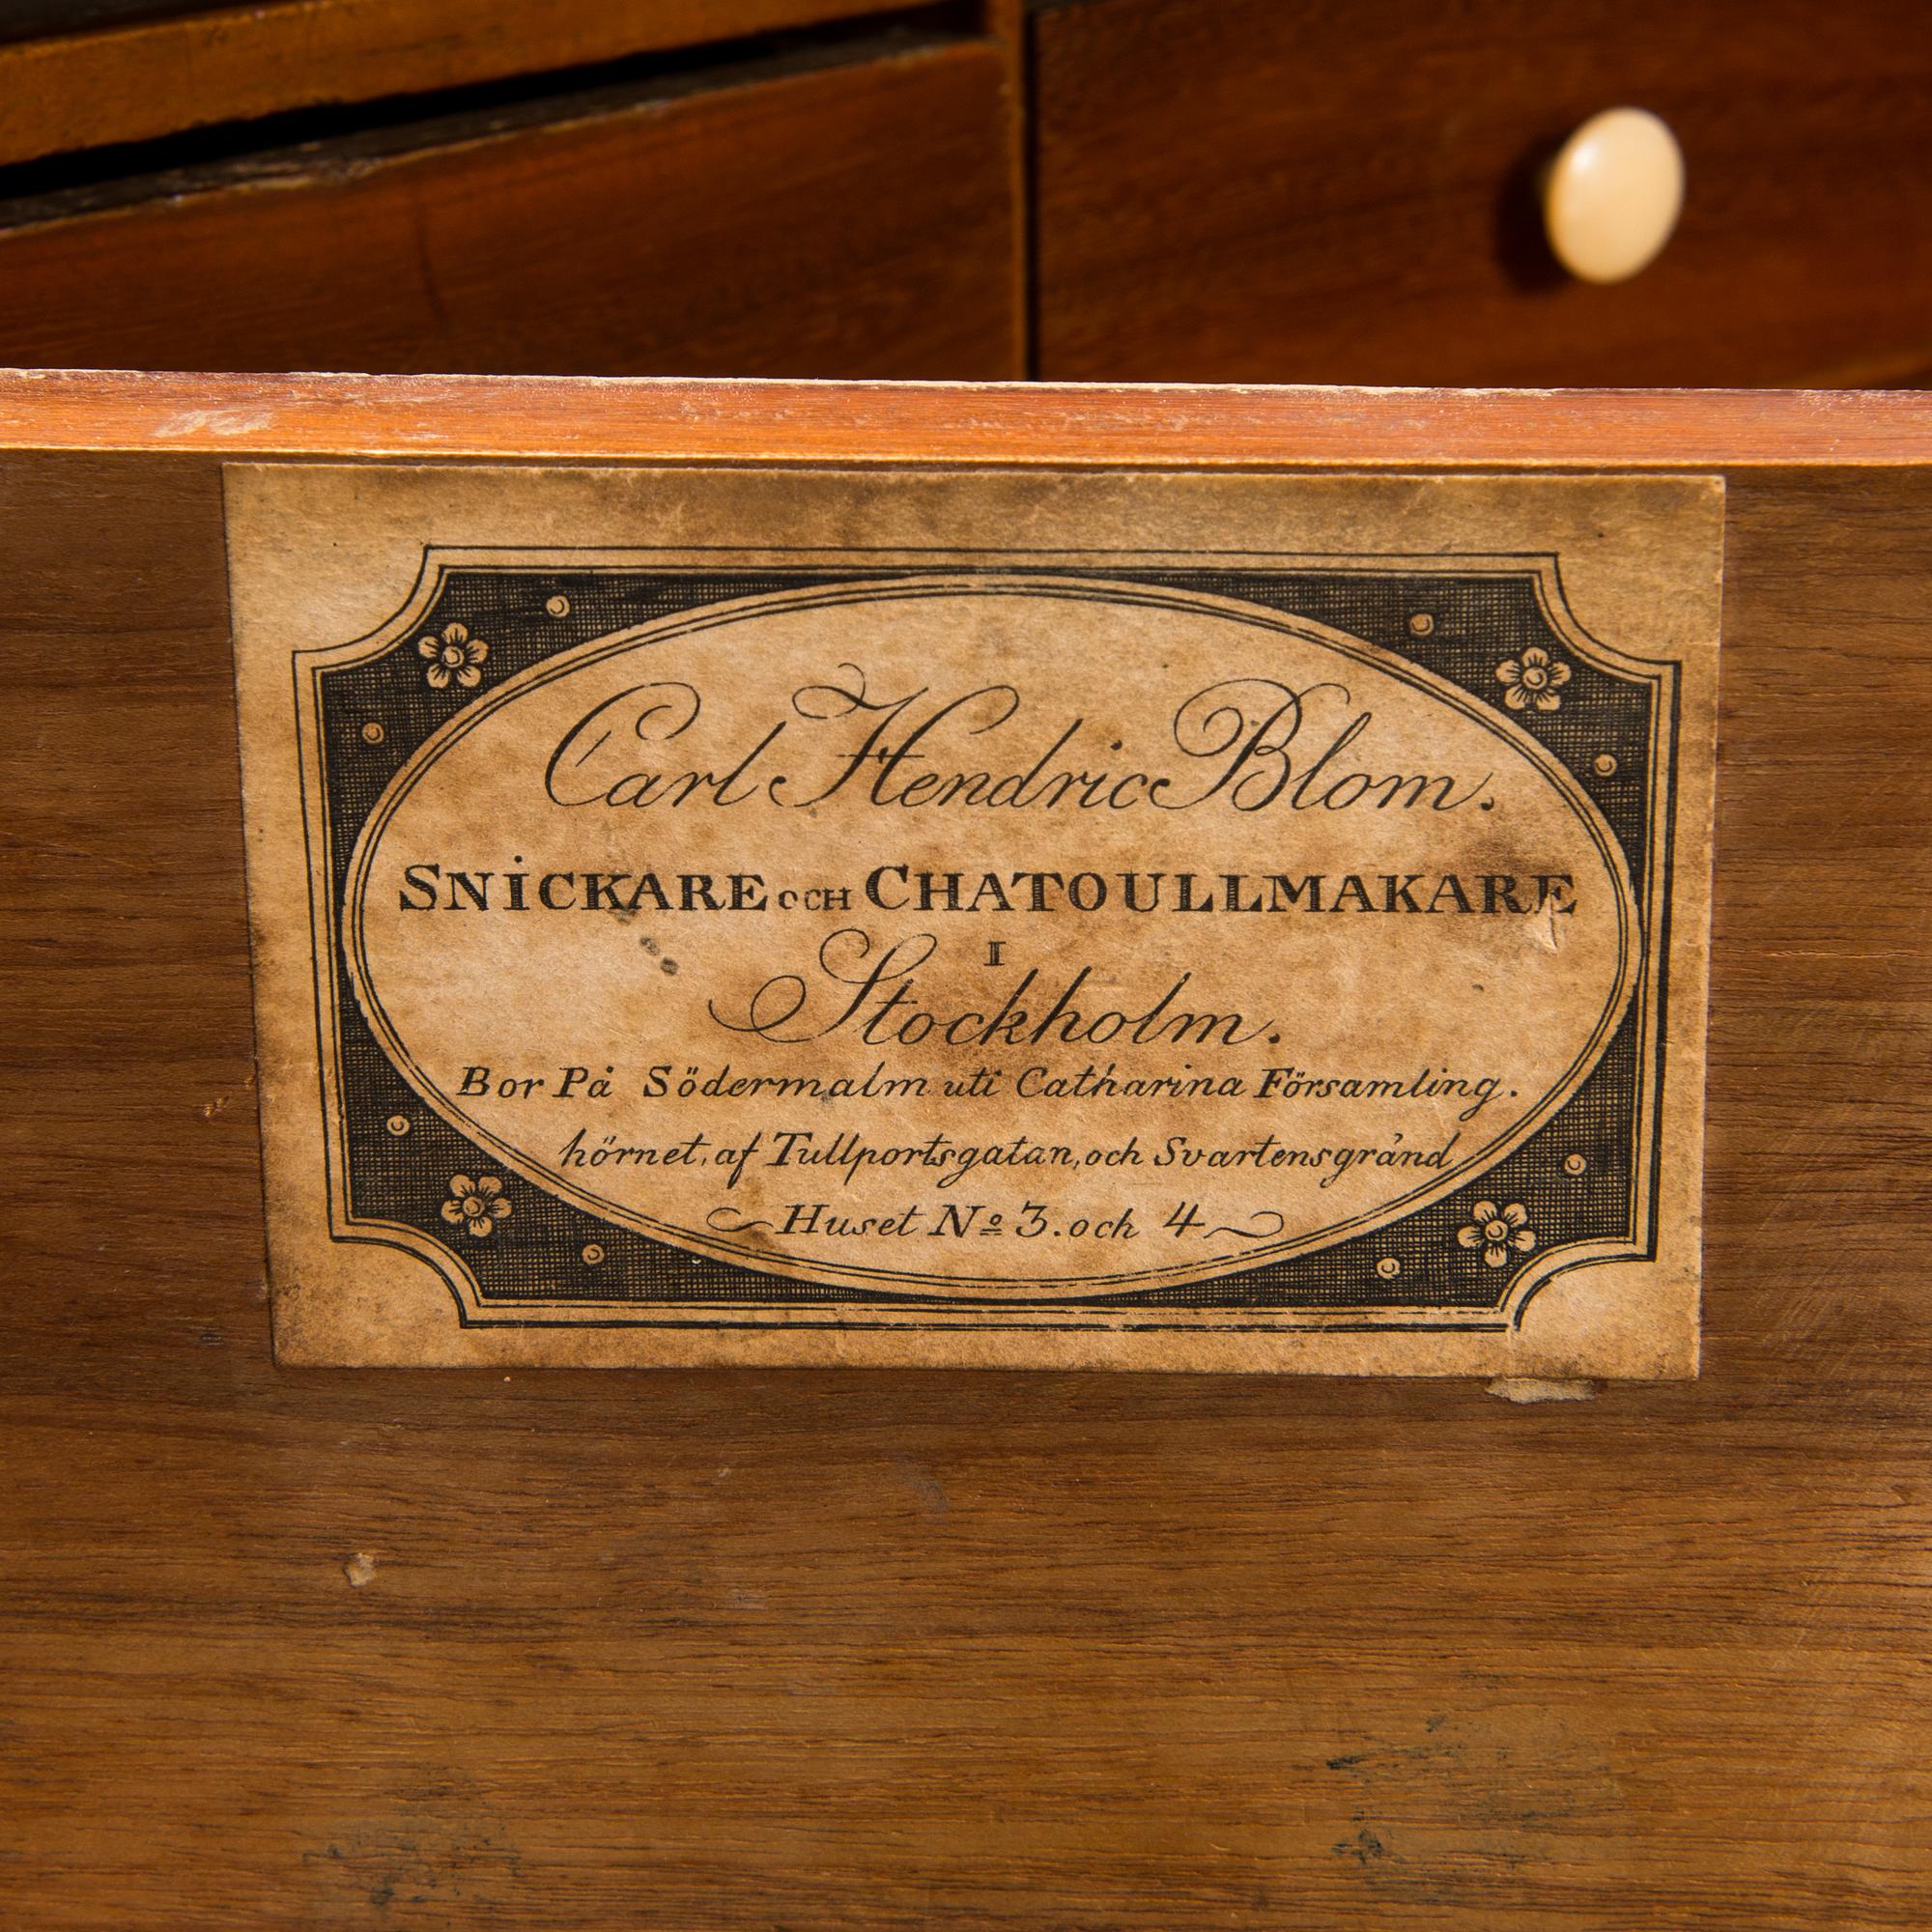 Carl Hendric Blom.
SNICKARE OCH CHATOULLMAKARE
I
Stockholm.
Bor På Södermalm uti Catharina Församling.
hörnet, af Tullportsgatan, och Svartensgränd
Huset Nº 3. och 4